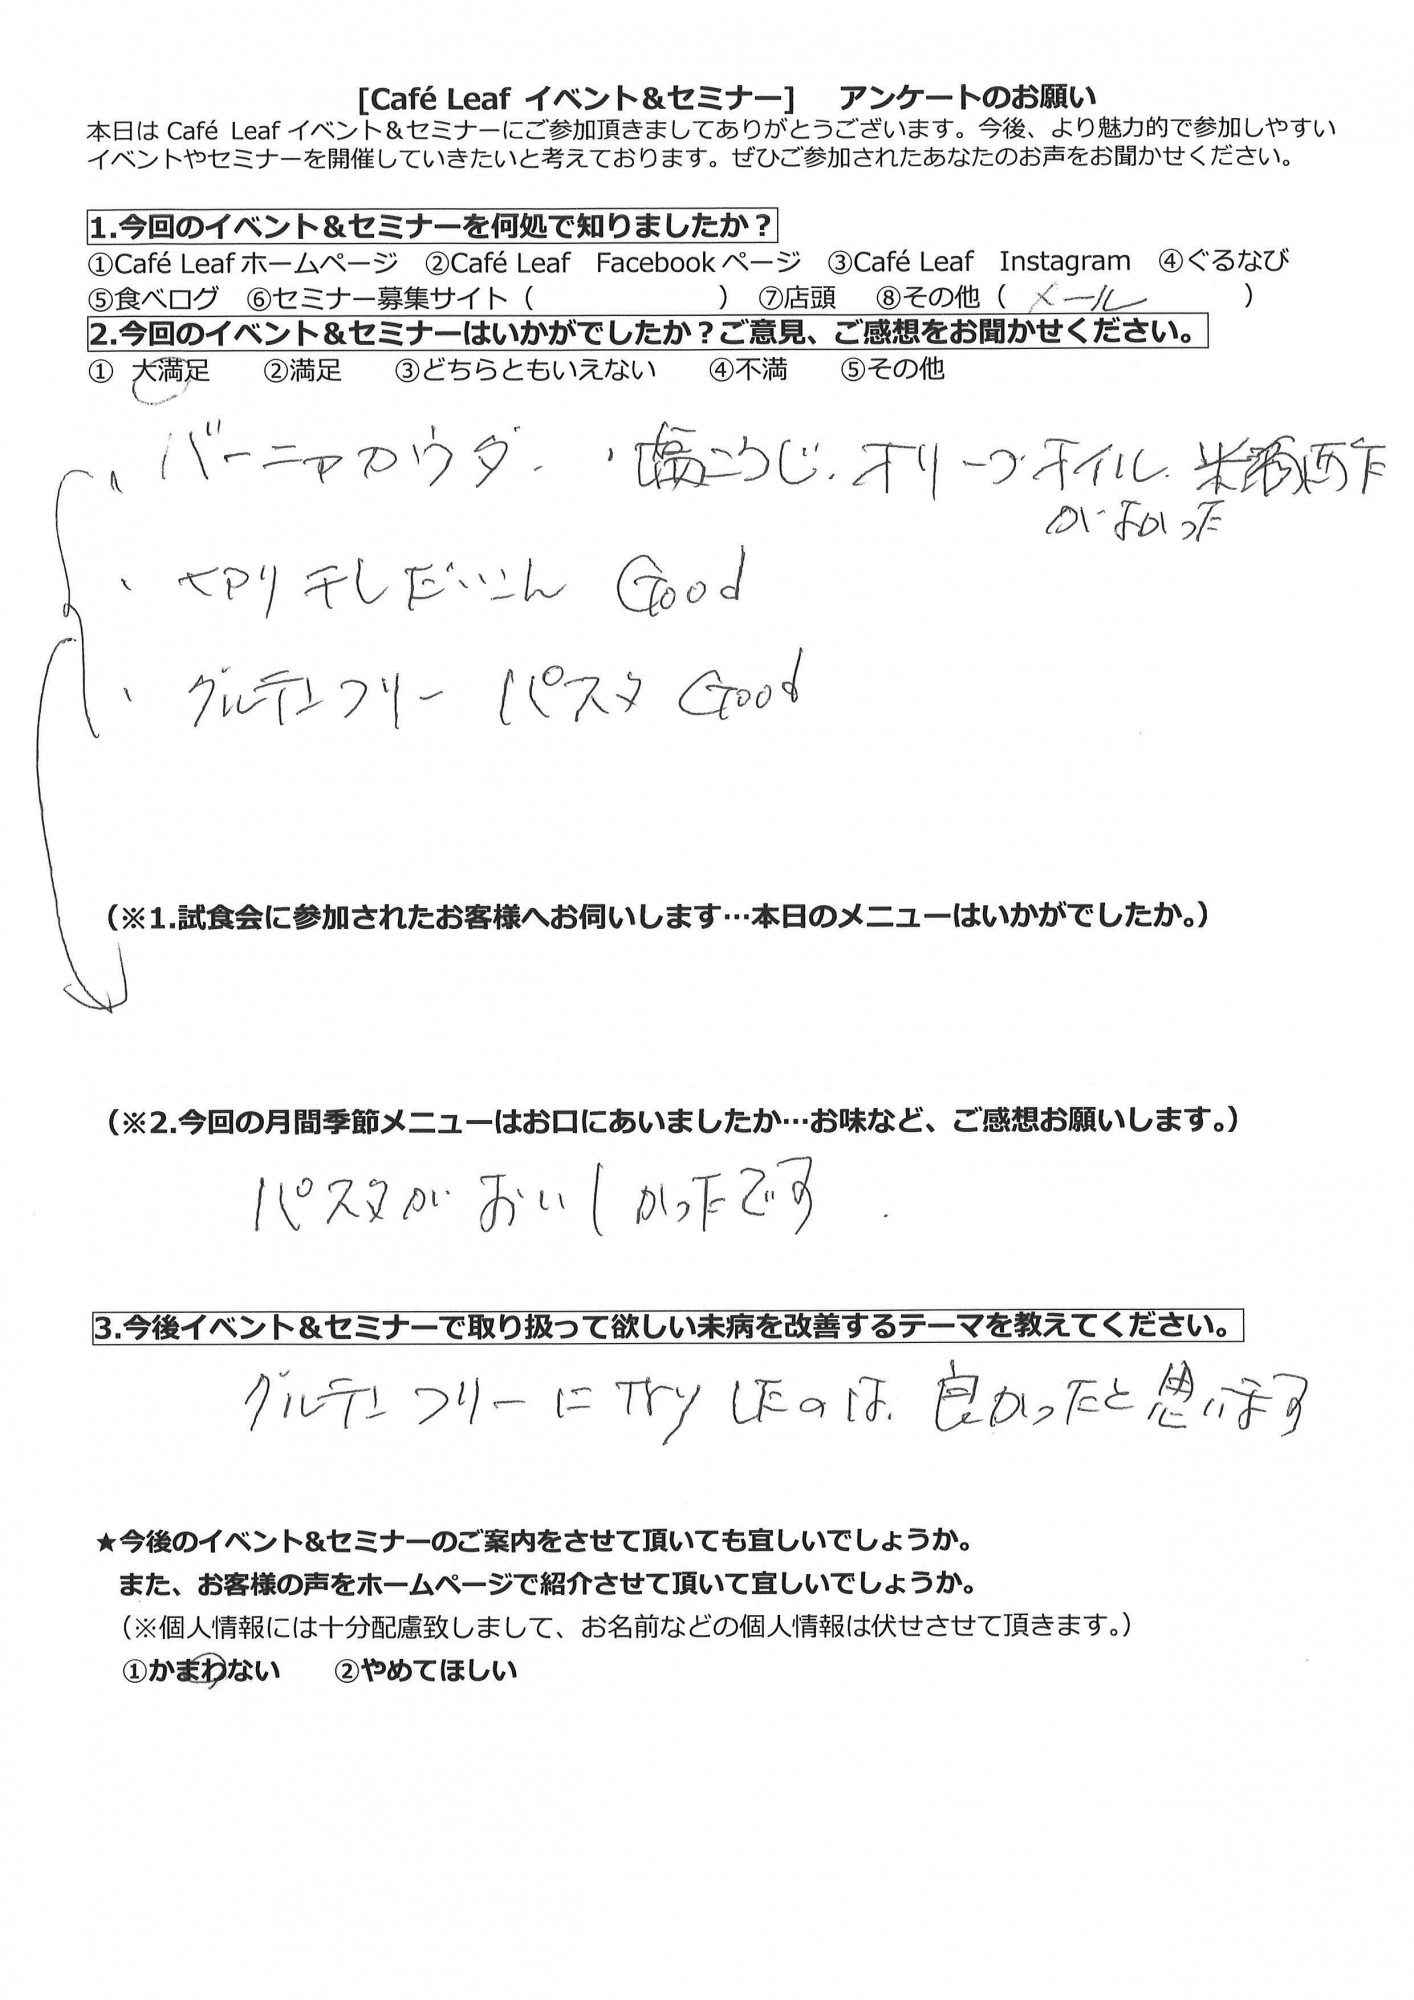 [Café Leaf イベント＆セミナー]　アンケートのお願い
本日は Café Leaf イベント＆セミナーにご参加頂きましてありがとうございます。今後、より魅力的で参加しやすい
イベントやセミナーを開催していきたいと考えております。ぜひご参加されたあなたのお声をお聞かせください。
1.今回のイベント＆セミナーを何処で知りましたか？
①Café Leaf ホームページ　②Café Leaf　Facebook ページ　③Café Leaf　Instagram　④ぐるなび
⑤食べログ　⑥セミナー募集サイト（　　　　　　　）　⑦店頭　⑧その他（　メール　　　　）
2.今回のイベント＆セミナーはいかがでしたか？ご意見、ご感想をお聞かせください。
①　大満足　　②満足　　③どちらともいえない　　④不満　　⑤その他
・バーニャカウダ・・塩こうじ、オリーブオイル、米酢
がよかった
・切り干しだいこん Good
・グルテンフリー パスタ Good
（※1.試食会に参加されたお客様へお伺いします…本日のメニューはいかがでしたか。）
（※2.今回の月間季節メニューはお口にあいましたか…お味など、ご感想お願いします。）
パスタがおいしかったです.
3.今後イベント＆セミナーで取り扱って欲しい未病を改善するテーマを教えてください。
グルテンフリーにTryしたのは、良かったと思います
★今後のイベント&セミナーのご案内をさせて頂いても宜しいでしょうか。
また、お客様の声をホームページで紹介させて頂いて宜しいでしょうか。
（※個人情報には十分配慮致しまして、お名前などの個人情報は伏せさせて頂きます。）
①かまわない　　②やめてほしい